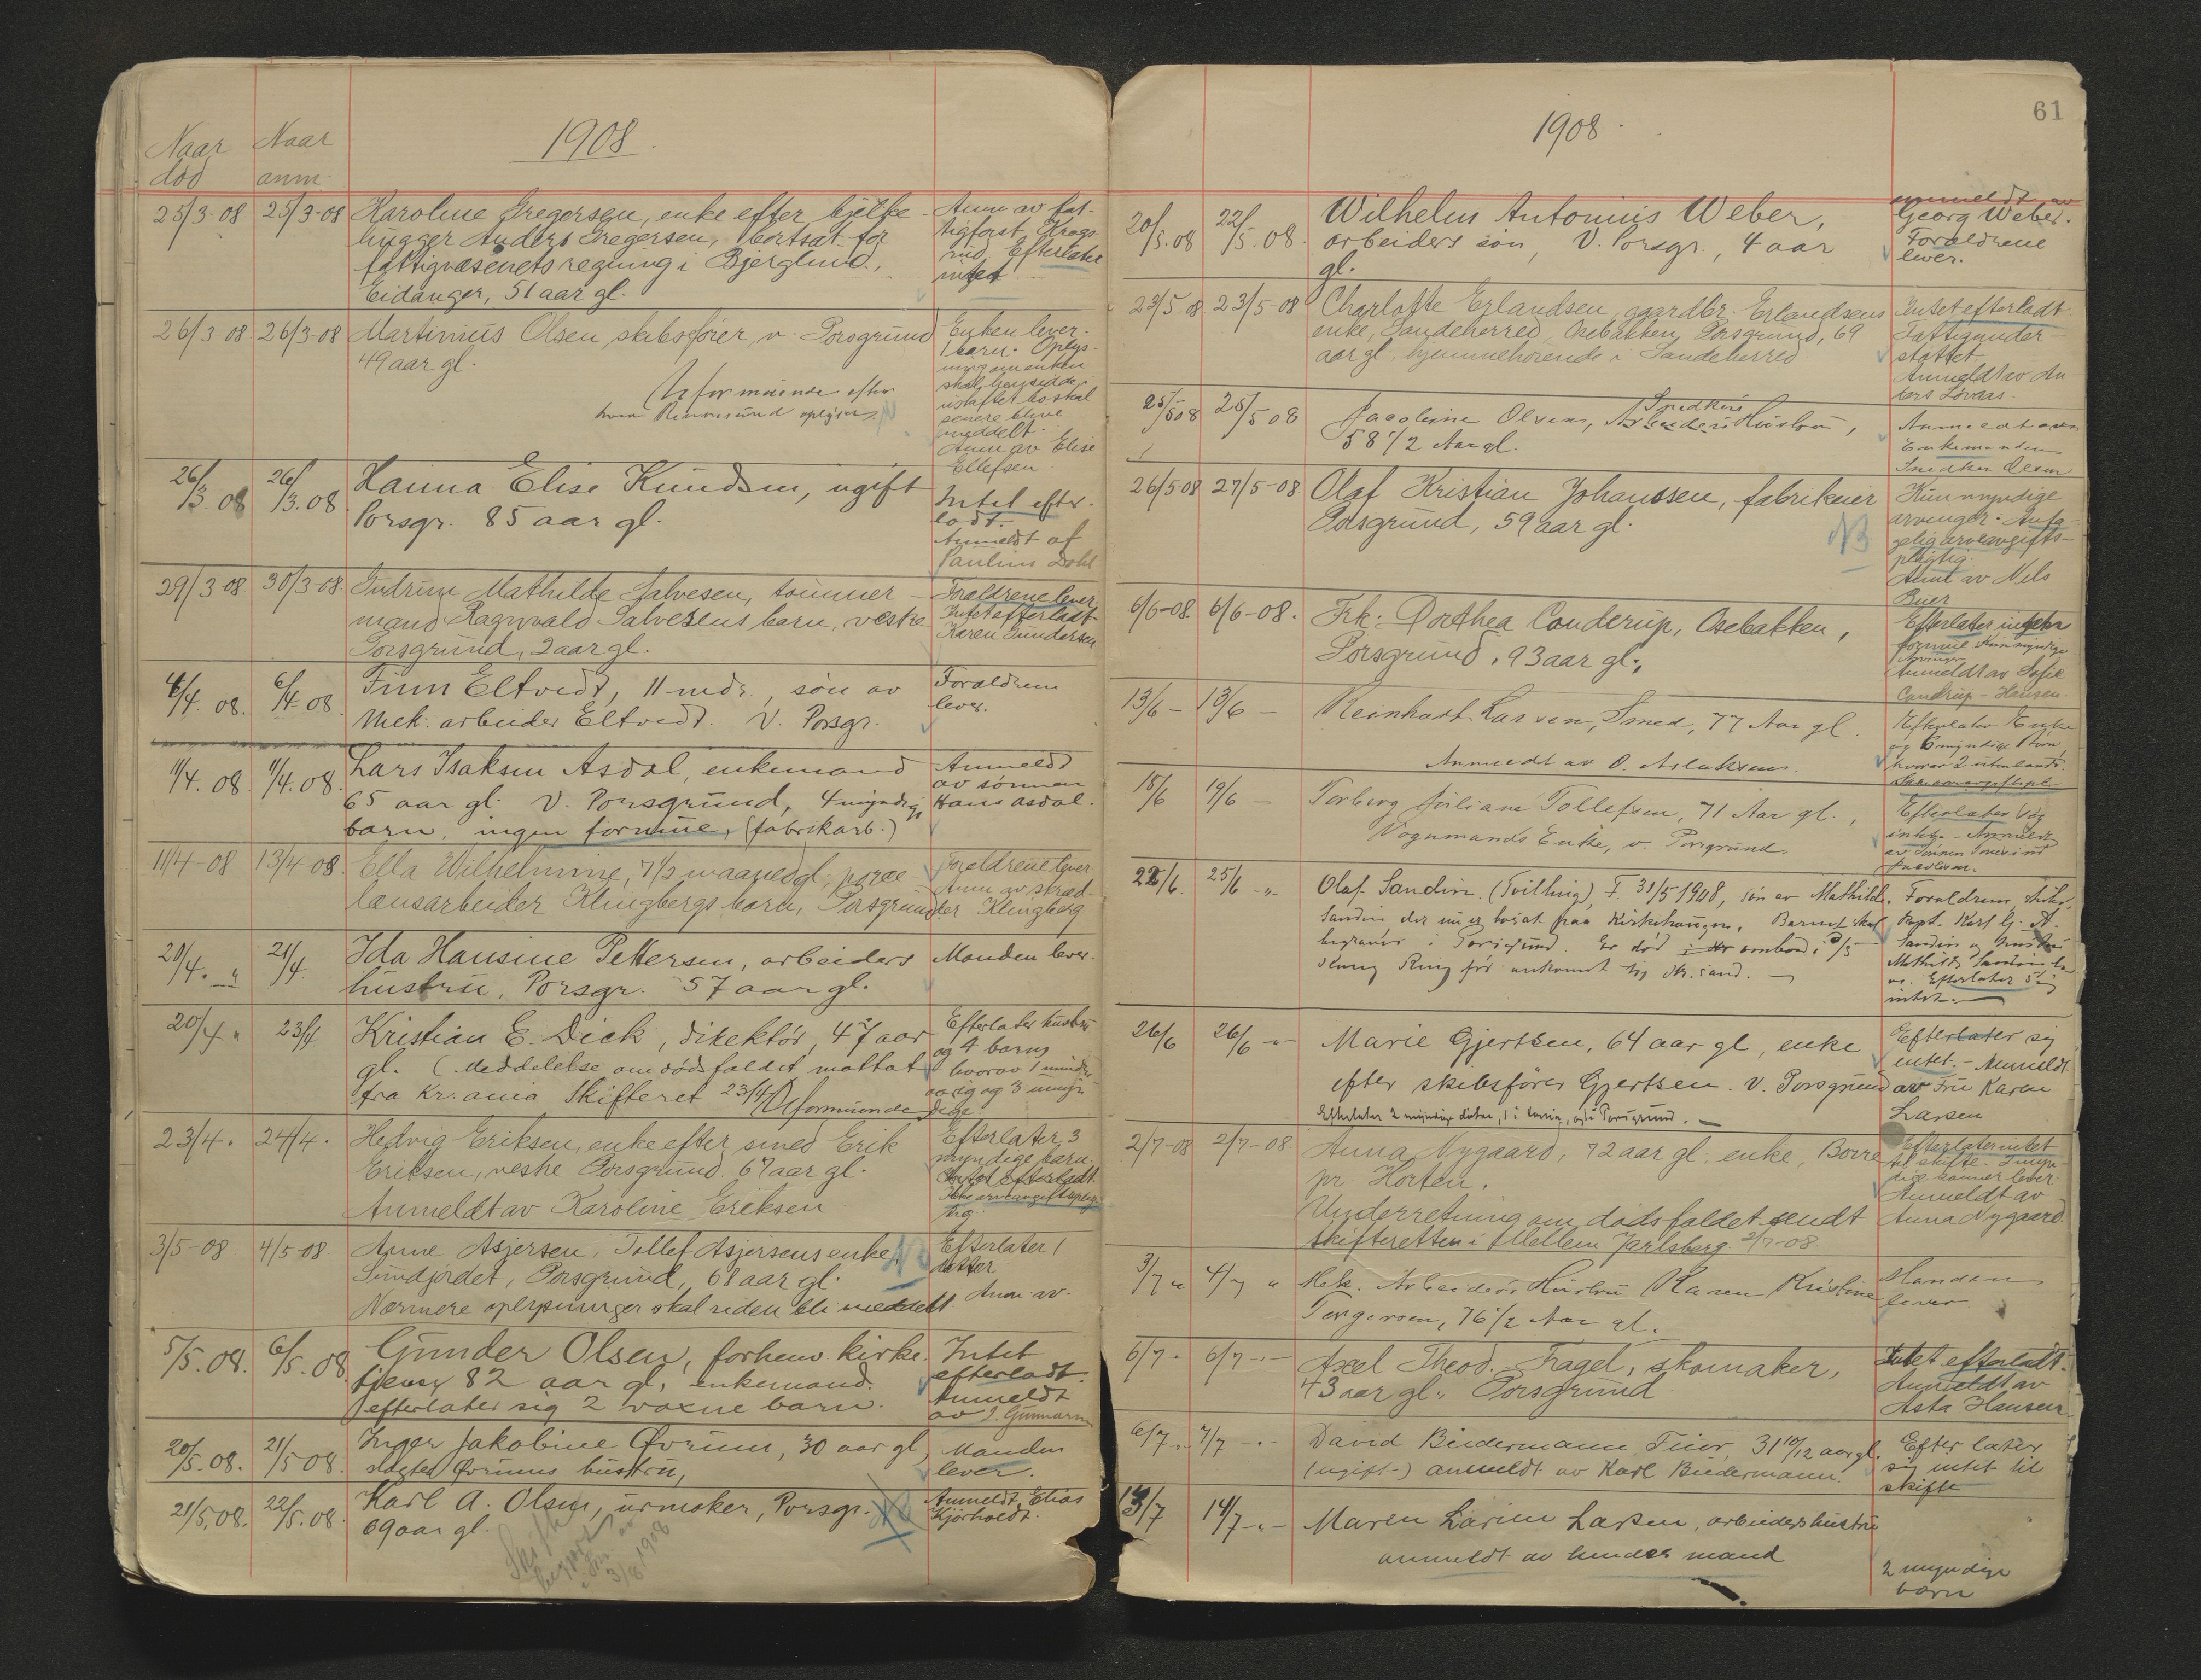 1908
Naar død
Naar anm.
25/3-08 25/3-08 Karoline Gregersen, enke efter bjelke-
hugger Anders Gregersen, bortsat for
fattigvæsenets regning i Bjerglund,
Eidanger, 51 aar gl.
Anm av fat-
tigforst. Krogs-
rud. Efterlater
intet
26/3-08 26/3-08 Martinius Olsen skibsfører, v. Porsgrund
49 aar gl.
Uformuende efter
hvad Rennesund oplyser
Enken lever.
1 barn. Oplys-
ning om enken
skal hensidde i
uskiftet bo skal
senere blive
meddelt.
Anm av Elise
Ellefsen
26/3 08 26/3.08 Hanna Elise Knudsen, ugift
Porsgr. 85 aar gl.
Intet efter-
ladt.
Anmeldt af
Pauline Dahl
29/3 08 30/3-08 Gudrun Mathilde Salvesen, tømmer-
mand Ragnvald Salvesens barn, vestre
Porsgrund, 2 aar gl.
Forældrene lever.
Intet efterladt
Karen Gundersen
4/4. 08. 6/4 08. Finn Eltvedt, 11 mdr., søn av
mek. arbeider Eltvedt. V. Porsgr.
Forældrene
lever.
11/4. 08 11/4. 08. Lars Isaksen Asdal, enkemand
65 aar gl. V. Porsgrund, 4 myndige
barn, ingen formue, (fabrikarb.)
Anmeldt
av sønnen
Hans Asdal.
11/4-08 13/4-08. Ella Wilhelmine, 7 1/2 maaned gl, porce-
lænsarbeider Klingbergs barn, Porsgrund
Forældrene lever
Anm av
Klingberg
20/4. " 21/4. Ida Hansine Pettersen, arbeiders
hustru, Porsgr. 57 aar gl.
Manden lever.
20/4 " 23/4 Kristian E. Dick, direktør, 47 aar
gl. (Meddelelse om dødsfaldet mottat
fra Kr.ania Skifteret 23/4) Uformuende
Efterlater hustru
og 4 barn
hvorav 1 minder-
aarig og 3 myn-
dige.
23/4. 24/4. Hedvig Eriksen, enke efter smed Erik
Eriksen, vestre Porsgrund. 67 aar gl.
Anmeldt av Karoline Eriksen
Efterlater 3
myndige barn.
Intet efterladt.
Ikke arveavgiftsplig-
tig.
3/5-08 4/5-08. Anne Asjersen, Tollef Asjersens enke,
Sundjordet, Porsgrund, 68 aar gl.
Nærmere oplysninger skal siden bli meddelt.
Efterlater 1
datter
Anm av.
5/5. 08. 6/5. 08 Gunder Olsen, forhenv. kirke-
tjener 82 aar gl, enkemand.
efterlater sig 2 voxne barn.
Intet
efterladt.
Anmeldt
av J. Gunnarsen
20/5-08. 21/5 08. Inger Jakobine Øvrum, 30 aar gl,
slagter Øvrums hustru,
Manden
lever.
21/5.08. 22/5.08. Karl A. Olsen, urmaker, Porsgr.
69 aar gl.
NB
Anmeldt Elias
Kjørholdt.
Skifte
begjært
3/8 1908
61
1908
20/5.08 22/5.08. Wilhelm Antonius Weber,
arbeiders søn, V. Porsgr., 4 aar
gl.
anmeldt av
Georg Weber.
Forældrene
lever.
23/5 08 23/5-08 Charlotte Erlandsen, gaardbr. Erlandsens
enke, Sandeherred, Osebakken, Porsgrund, 69
aar gl, hjemmehørende i Sandeherred
Intet efterladt
Fattigunder-
støttet.
Anmeldt av An-
ders Løvaas
25/5 08 25/5 08 Jacobine Olsen, Arbeiders Snedkers Hustru,
58 1/2 Aar gl.
Anmeldt av
Enkemanden
Snedker Olsen
26/5 08 27/5-08 Olaf Kristian Johanssen, fabrikeier
Porsgrund, 59 aar gl.
NB
Kun myndige
arvinger. Anta-
gelig arveavgifts-
pligtig.
Anm av Nils
Buer
6/6-08. 6/6-08. Frk. Dorthea Conderup, Osebakken,
Porsgrund, 93 aar gl.,
Efterlater ingen
formue. Kun myndige
Arvinger
Anmeldt av Sofie
Condrup-Hansen.
13/6 - 13/6 - Reinhart Larsen, Smed, 77 Aar gl.
Anmeldt av O. Aslaksen.
Efterlater Enke
og 6 myndige Børn,
hvorav 2 utenlands.
18/6 19/6 - Torberg Juliane Tollefsen, 71 Aar gl.,
Vognmands Enke, v. Porsgrund.
Efterlater sig
intet. - Anmeldt
av Sønnen
22/6. 25/6 -"- Olaf Sandin. (Tvilling), F. 31/5 1908, søn av Mathilde
Sandin, der nu er bosat fra Kirkehaugen. Barnet skal
begraves i Porsgrund. Er død ombord i D/S
Kong Ring før ankomst til Kr.sand. -
Forældrene,
Kapt. Karl G. A.
Sandin og hustru
Mathilde Sandin le-
ver. Efterlater sig
intet. -
26/6 26/6 -"- Marie Gjertsen, 64 aar gl, enke
efter skibsfører Gjertsen. V. Porsgrund
Efterlater sig
intet. - Anmeldt
av Fru Karen
Larsen
2/7-08 2/7-08. Anna Nygaard, 72 aar gl. enke, Borre
pr Horten.
Underretning om dødsfaldet sendt
skifteretten i Mellem Jarlsberg. 2/7-08
Efterlater intet
til skifte. 2 myn-
dige sønner lever.
Anmeldt av
Anna Nygaard.
3/7 " 4/7 " Mek. Arbeiders Hustru Karen Kristine
Torgersen, 76 1/2 Aar gl.
Manden
lever.
6/7 - 6/7 -"- Axel Theod. Fragel, skomaker,
43 aar gl. Porsgrund
Intet efterladt.
Anmeldt av
Asta Hansen
6/7 " 7/7 -"- David Biedermann Feier, 31 10/12 aar gl.
(ugift) anmeldt av Karl Biedermann.
Efterlater
sig intet til
skifte
13/7 14/7 -"- Maren Larine Larsen, arbeiders hustru
anmeldt av hendes mand
2 myndige
barn